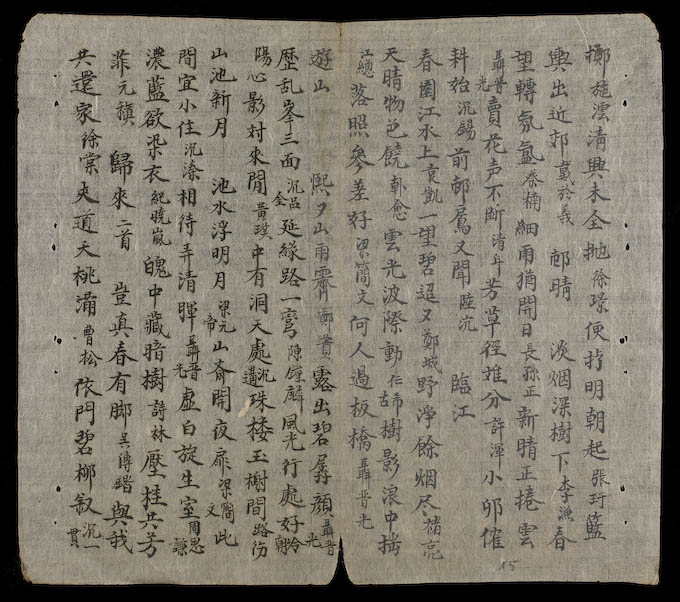 施澐清興未全抛徐璨便指明朝起張玗籃
輿出近郊戴於義　邨晴　淡烟深樹下李漁春
望轉氛氳蔡楠細雨猶開日長孫正新晴正捲雲
聶晉光賣花声不断清年芳草徑难分許渾小卯催
耕始沉錫前邨又聞陸沆　臨江
春園江水上袁凱一望碧迢又鄭城野淨餘烟尽禇亮
天晴物色饒韩愈雲光波際動希古樹影浪中摇
江總落照參差好梁簡文何人過板橋聶晉光
遊山　熙夕山雨霽鄭賁露出碧孱顏聶晉光
歷乱峯三面沉吕全延緣路一弯陳鍾麟風光行處好冷朝
陽心影对來閒黄璞中有洞天處沉遘珠楼玉榭間路
山池新月　池水浮明月梁元帝山斎開夜扉梁簡文此
間宜小住沉溱相待弄清暉聶晉光虚白旋生室周思謙
濃藍欲染衣紀曉嵐魄中藏暗樹許林壓桂共芳
菲元稹　歸來二首　豈真春有脚吴傳與我
共還家徐棠夹道夭桃滿曹松依門碧柳叙沉一貫
15